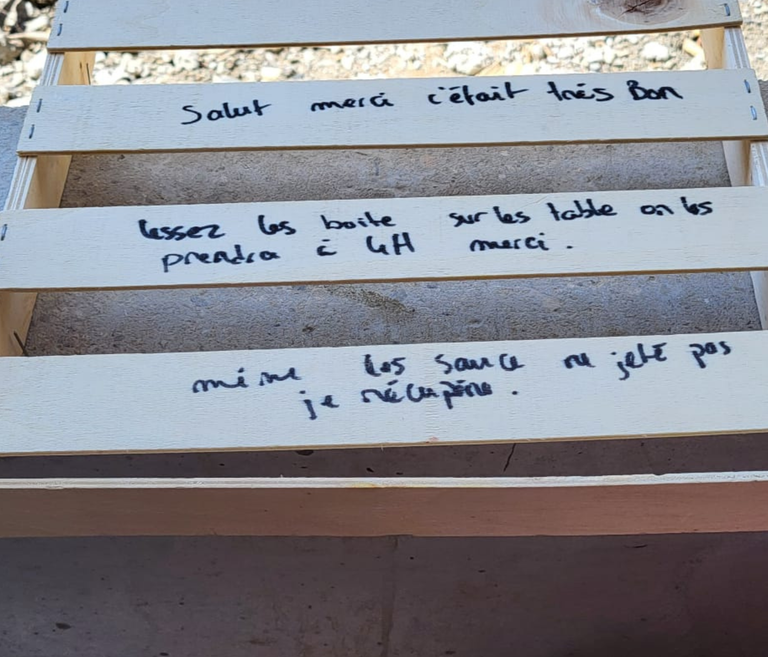 Salut merci c'était très Bon
lessez les boite sur les table on les
prendra à 4H merci.
même les sauce ne jeté pas
je récupère.